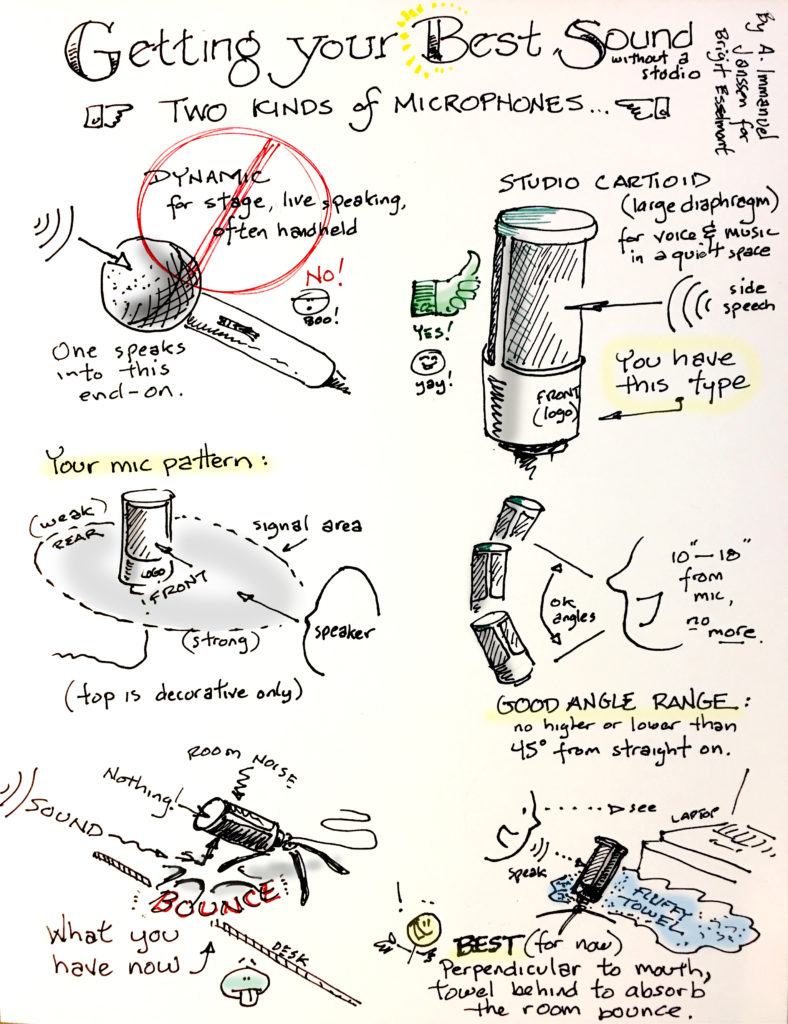 Getting your Best Sound
without a
studio
By A. Immanuel
Janssen for
Brigit Esselmont
TWO KINDS of MICROPHONES...
DYNAMIC
for stage, live speaking,
often handheld
NO!
BOO!
One speaks
into this
end-on.
STUDIO CARTIOID
(large diaphragm)
for voice & music
in a quiet space
side
speech
YES!
yay!
You have
this type
FRONT
(logo)
Your mic pattern:
(weak)
REAR
signal area
LOGO
FRONT
(strong)
speaker
(top is decorative only)
ok
angles
10"—18"
from
mic,
no
more.
GOOD ANGLE RANGE:
no higher or lower than
45° from straight on.
ROOM NOISE
Nothing!
SOUND
BOUNCE
What you
have now
DESK
see
LAPTOP
speak
FLUFFY
TOWEL
!
BEST (for now)
Perpendicular to mouth,
towel behind to absorb
the room bounce.